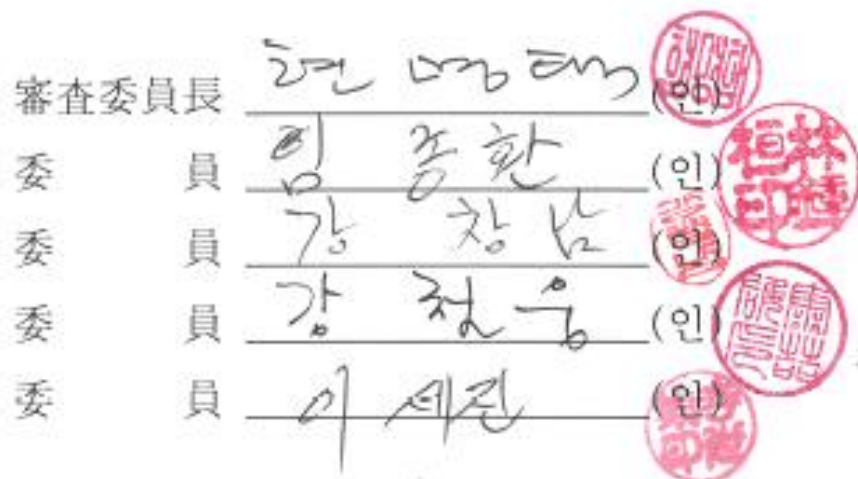 審査委員長 현 명택 (인)
委 員 임 종환 (인)
委 員 강 창남 (인)
委 員 강 철웅 (인)
委 員 이 세진 (인)